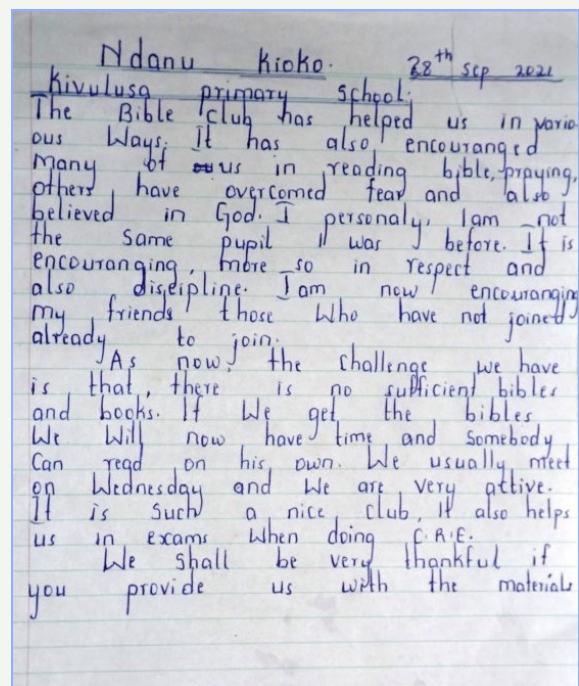 Ndanu Kioko. 28th Sep 2021
Kivulusa primary school.
The Bible club has helped us in vario
ous Ways. It has also encouranged
many of us in reading bible, praying,
others have overcomed fear and also
believed in God. I personaly, Iam not
the same pupil I was before. It is
encouranging, more so in respect and
also diseipline. Iam now encouranging
my friends those Who have not joined
already to join.
As now, the challenge we have
is that, there is no sufficient bibles
and books. If We get the bibles
We Will now have time and somebody
Can read on his own. We usually meet
on Wednesday and We are very attive.
It is such a nice club, it also helps
us in exams When doing C.R.E.
We shall be very thankful if
you provide us with the materials